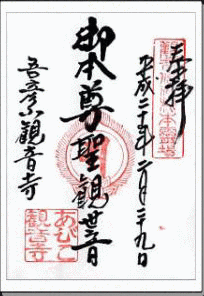 奉拝
平成二十年 月二十九日
御本尊聖観世音
吾彦山観音寺
本霊場
あびこ
観音寺